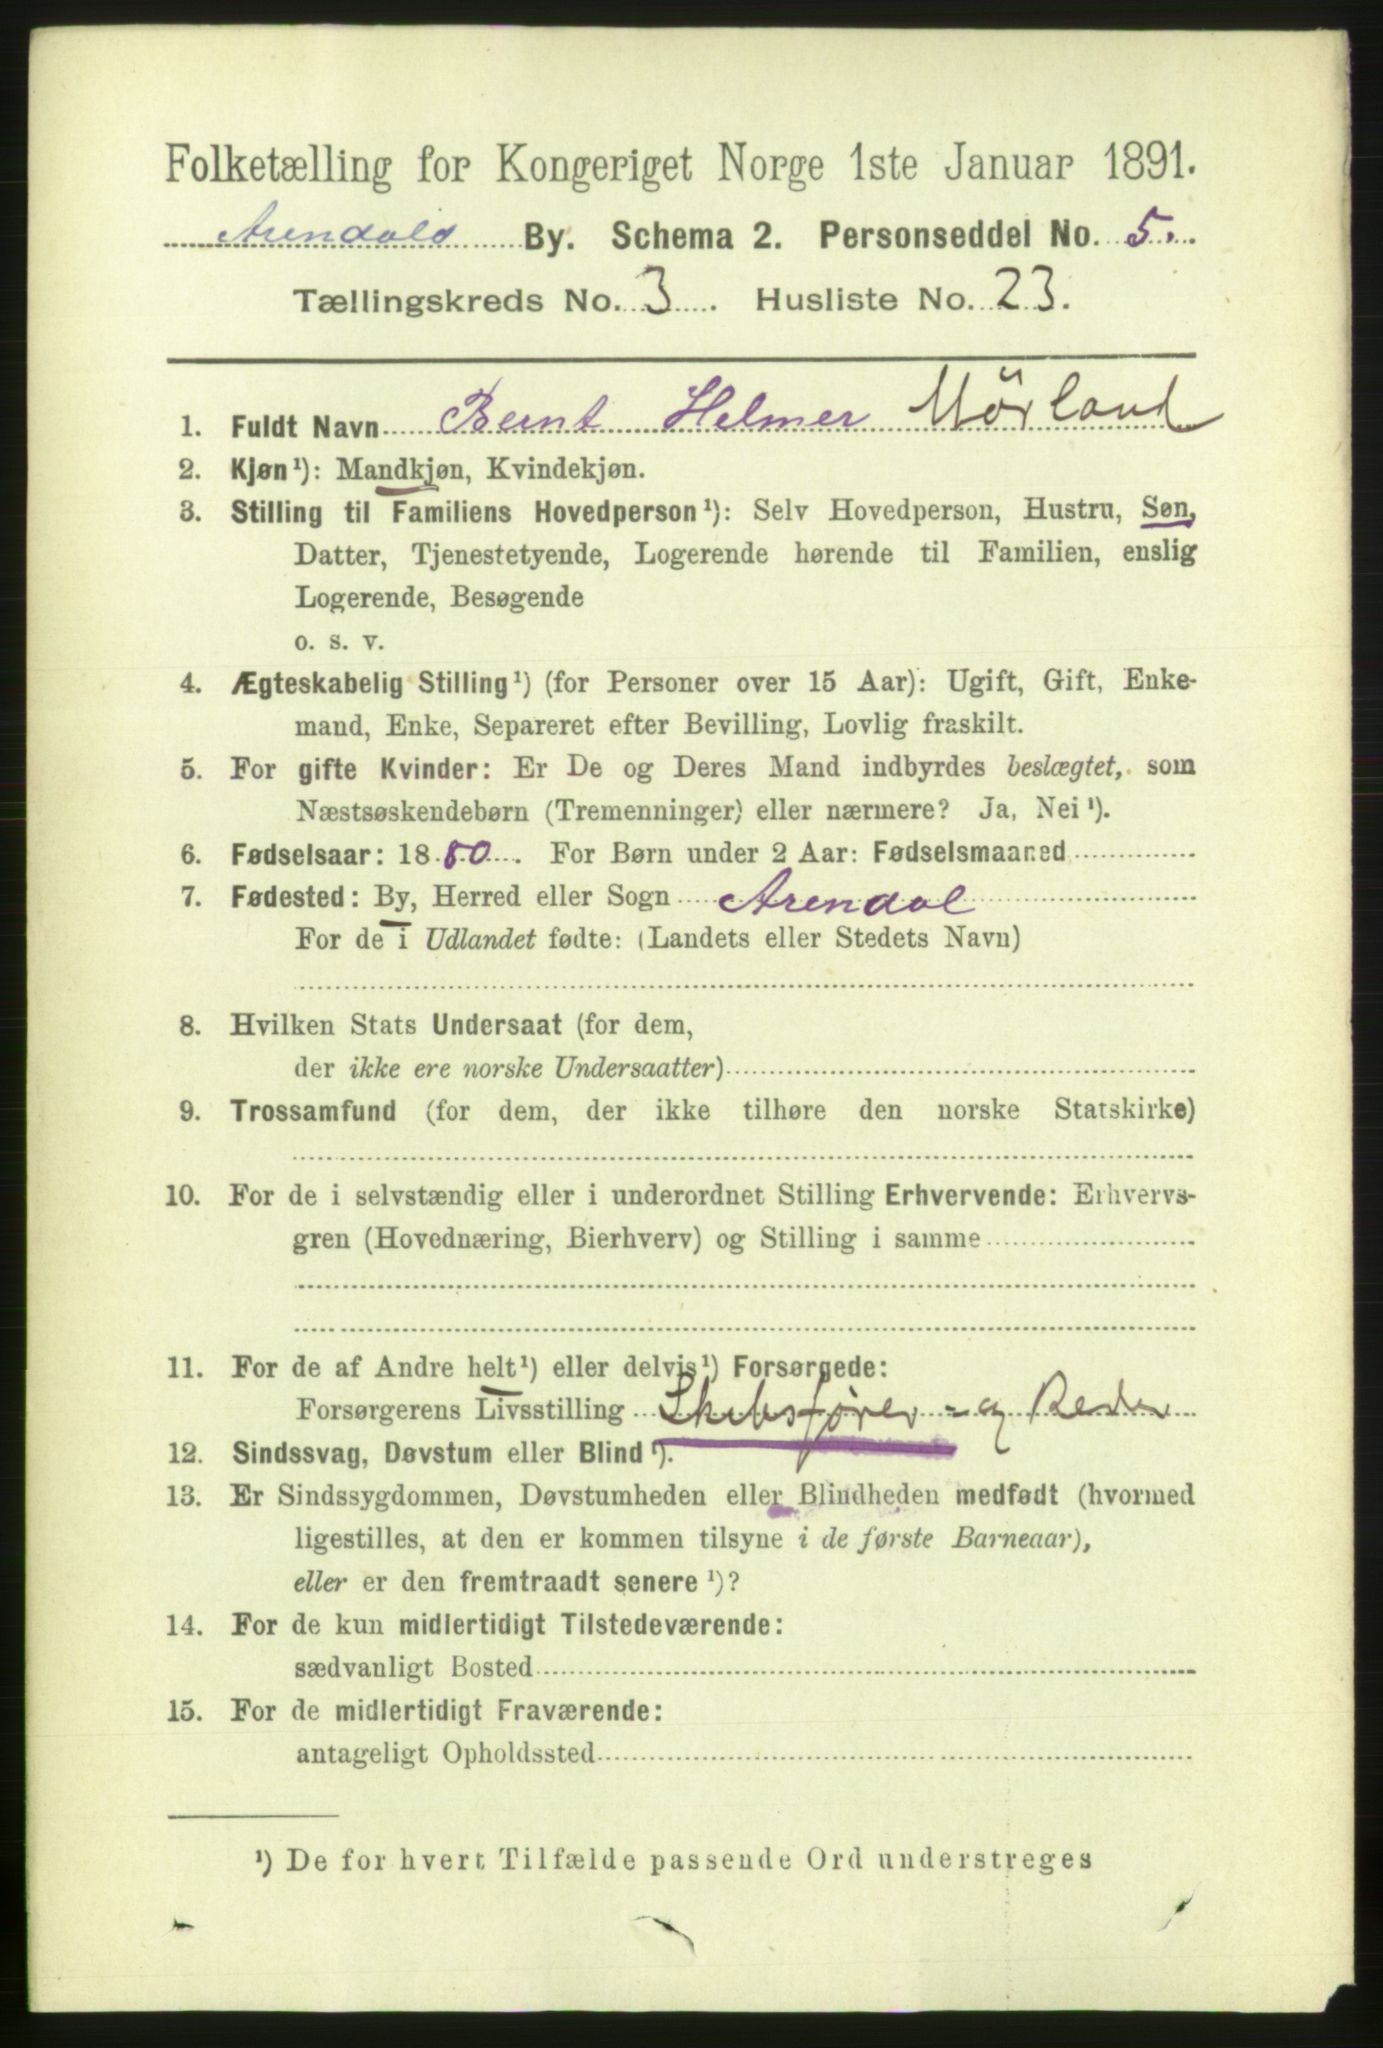 Folketælling for Kongeriget Norge 1ste Januar 1891.
Arendals By. Schema 2. Personseddel No. 5.
Tællingskreds No. 3. Husliste No. 23.
1. Fuldt Navn Bernt Helmer Mörland
2. Kjøn¹): Mandkjøn, Kvindekjøn.
3. Stilling til Familiens Hovedperson¹): Selv Hovedperson, Hustru, Søn,
Datter, Tjenestetyende, Logerende hørende til Familien, enslig
Logerende, Besøgende
o. s. v.
4. Ægteskabelig Stilling¹) (for Personer over 15 Aar): Ugift, Gift, Enke-
mand, Enke, Separeret efter Bevilling, Lovlig fraskilt.
5. For gifte Kvinder: Er De og Deres Mand indbyrdes beslægtet, som
Næstsøskendebørn (Tremenninger) eller nærmere? Ja, Nei¹).
6. Fødselsaar: 1880. For Børn under 2 Aar: Fødselsmaaned
7. Fødested: By, Herred eller Sogn Arendal
For de i Udlandet fødte: (Landets eller Stedets Navn)
8. Hvilken Stats Undersaat (for dem,
der ikke ere norske Undersaatter)
9. Trossamfund (for dem, der ikke tilhøre den norske Statskirke)
10. For de i selvstændig eller i underordnet Stilling Erhvervende: Erhvervs-
gren (Hovednæring, Bierhverv) og Stilling i samme
11. For de af Andre helt¹) eller delvis¹) Forsørgede:
Forsørgerens Livsstilling Skibsfører - og Reder
12. Sindssvag, Døvstum eller Blind¹).
13. Er Sindssygdommen, Døvstumheden eller Blindheden medfødt (hvormed
ligestilles, at den er kommen tilsyne i de første Barneaar),
eller er den fremtraadt senere¹)?
14. For de kun midlertidigt Tilstedeværende:
sædvanligt Bosted
15. For de midlertidigt Fraværende:
antageligt Opholdssted
¹) De for hvert Tilfælde passende Ord understreges